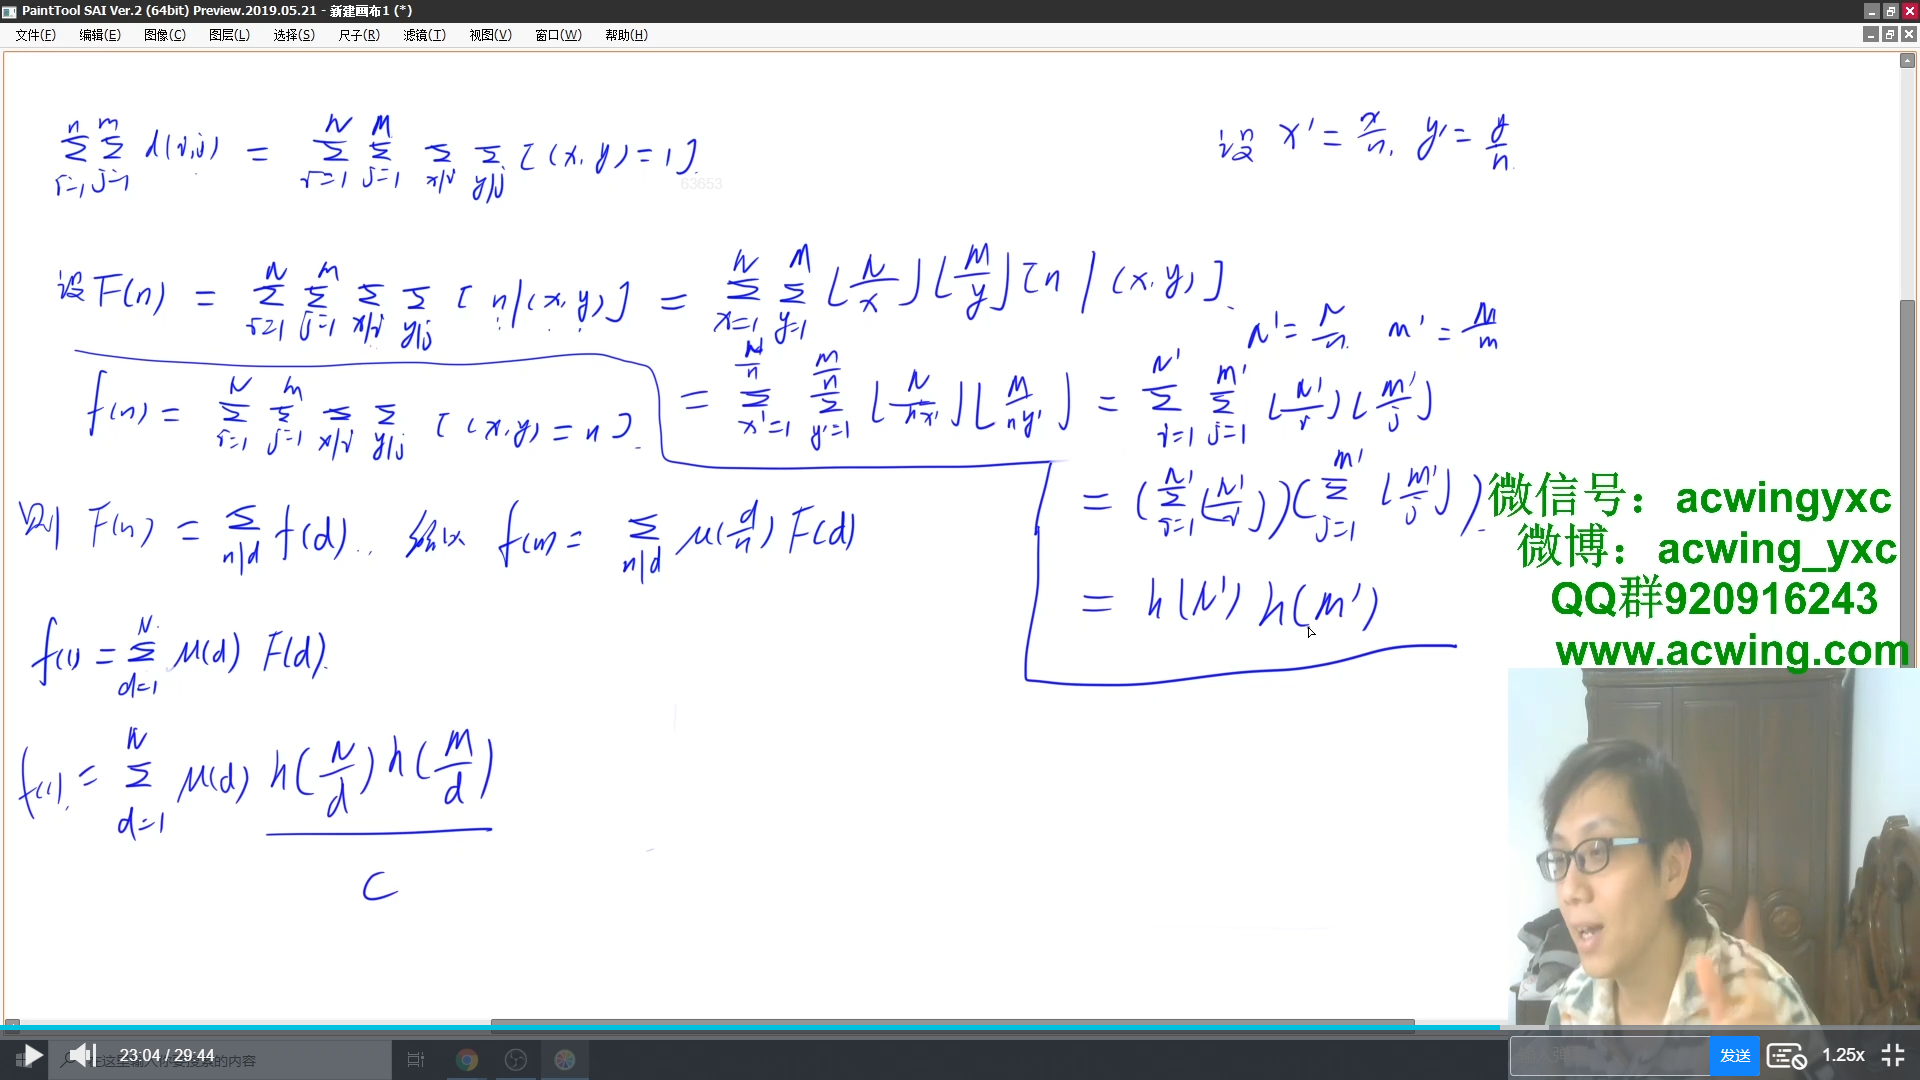 PaintTool SAI Ver.2 (64bit) Preview.2019.05.21 - 新建画布1 (*)
文件(F) 编辑(E) 图像(C) 图层(L) 选择(S) 尺子(R) 滤镜(T) 视图(V) 窗口(W) 帮助(H)
∑_{i=1}^{n} ∑_{j=1}^{m} d(i,j) = ∑_{i=1}^{N} ∑_{j=1}^{M} ∑_{x|i} ∑_{y|j} [(x,y)=1].
63653
设 x' = x/n, y' = y/n.
设 F(n) = ∑_{i=1}^{N} ∑_{j=1}^{m} ∑_{x|i} ∑_{y|j} [n|(x,y)] = ∑_{x=1}^{N} ∑_{y=1}^{M} ⌊N/x⌋⌊M/y⌋[n|(x,y)].
N' = N/n. m' = M/m
= ∑_{x'=1}^{N/n} ∑_{y'=1}^{m/n} ⌊N/nx'⌋⌊M/ny'⌋ = ∑_{i=1}^{N'} ∑_{j=1}^{m'} ⌊N'/i⌋⌊m'/j⌋
f(n) = ∑_{i=1}^{N} ∑_{j=1}^{m} ∑_{x|i} ∑_{y|j} [(x,y)=n].
= (∑_{i=1}^{N'} ⌊N'/i⌋)(∑_{j=1}^{m'} ⌊m'/j⌋).
则 F(n) = ∑_{n|d} f(d). 所以 f(n) = ∑_{n|d} μ(d/n) F(d)
= h(N') h(m')
f(1) = ∑_{d=1}^{N} μ(d) F(d).
f(1) = ∑_{d=1}^{N} μ(d) h(N/d) h(M/d)
C
微信号：acwingyxc
微博：acwing_yxc
QQ群920916243
www.acwing.com
23:04 / 29:44
在这里输入你要搜索的内容
发送 1.25x